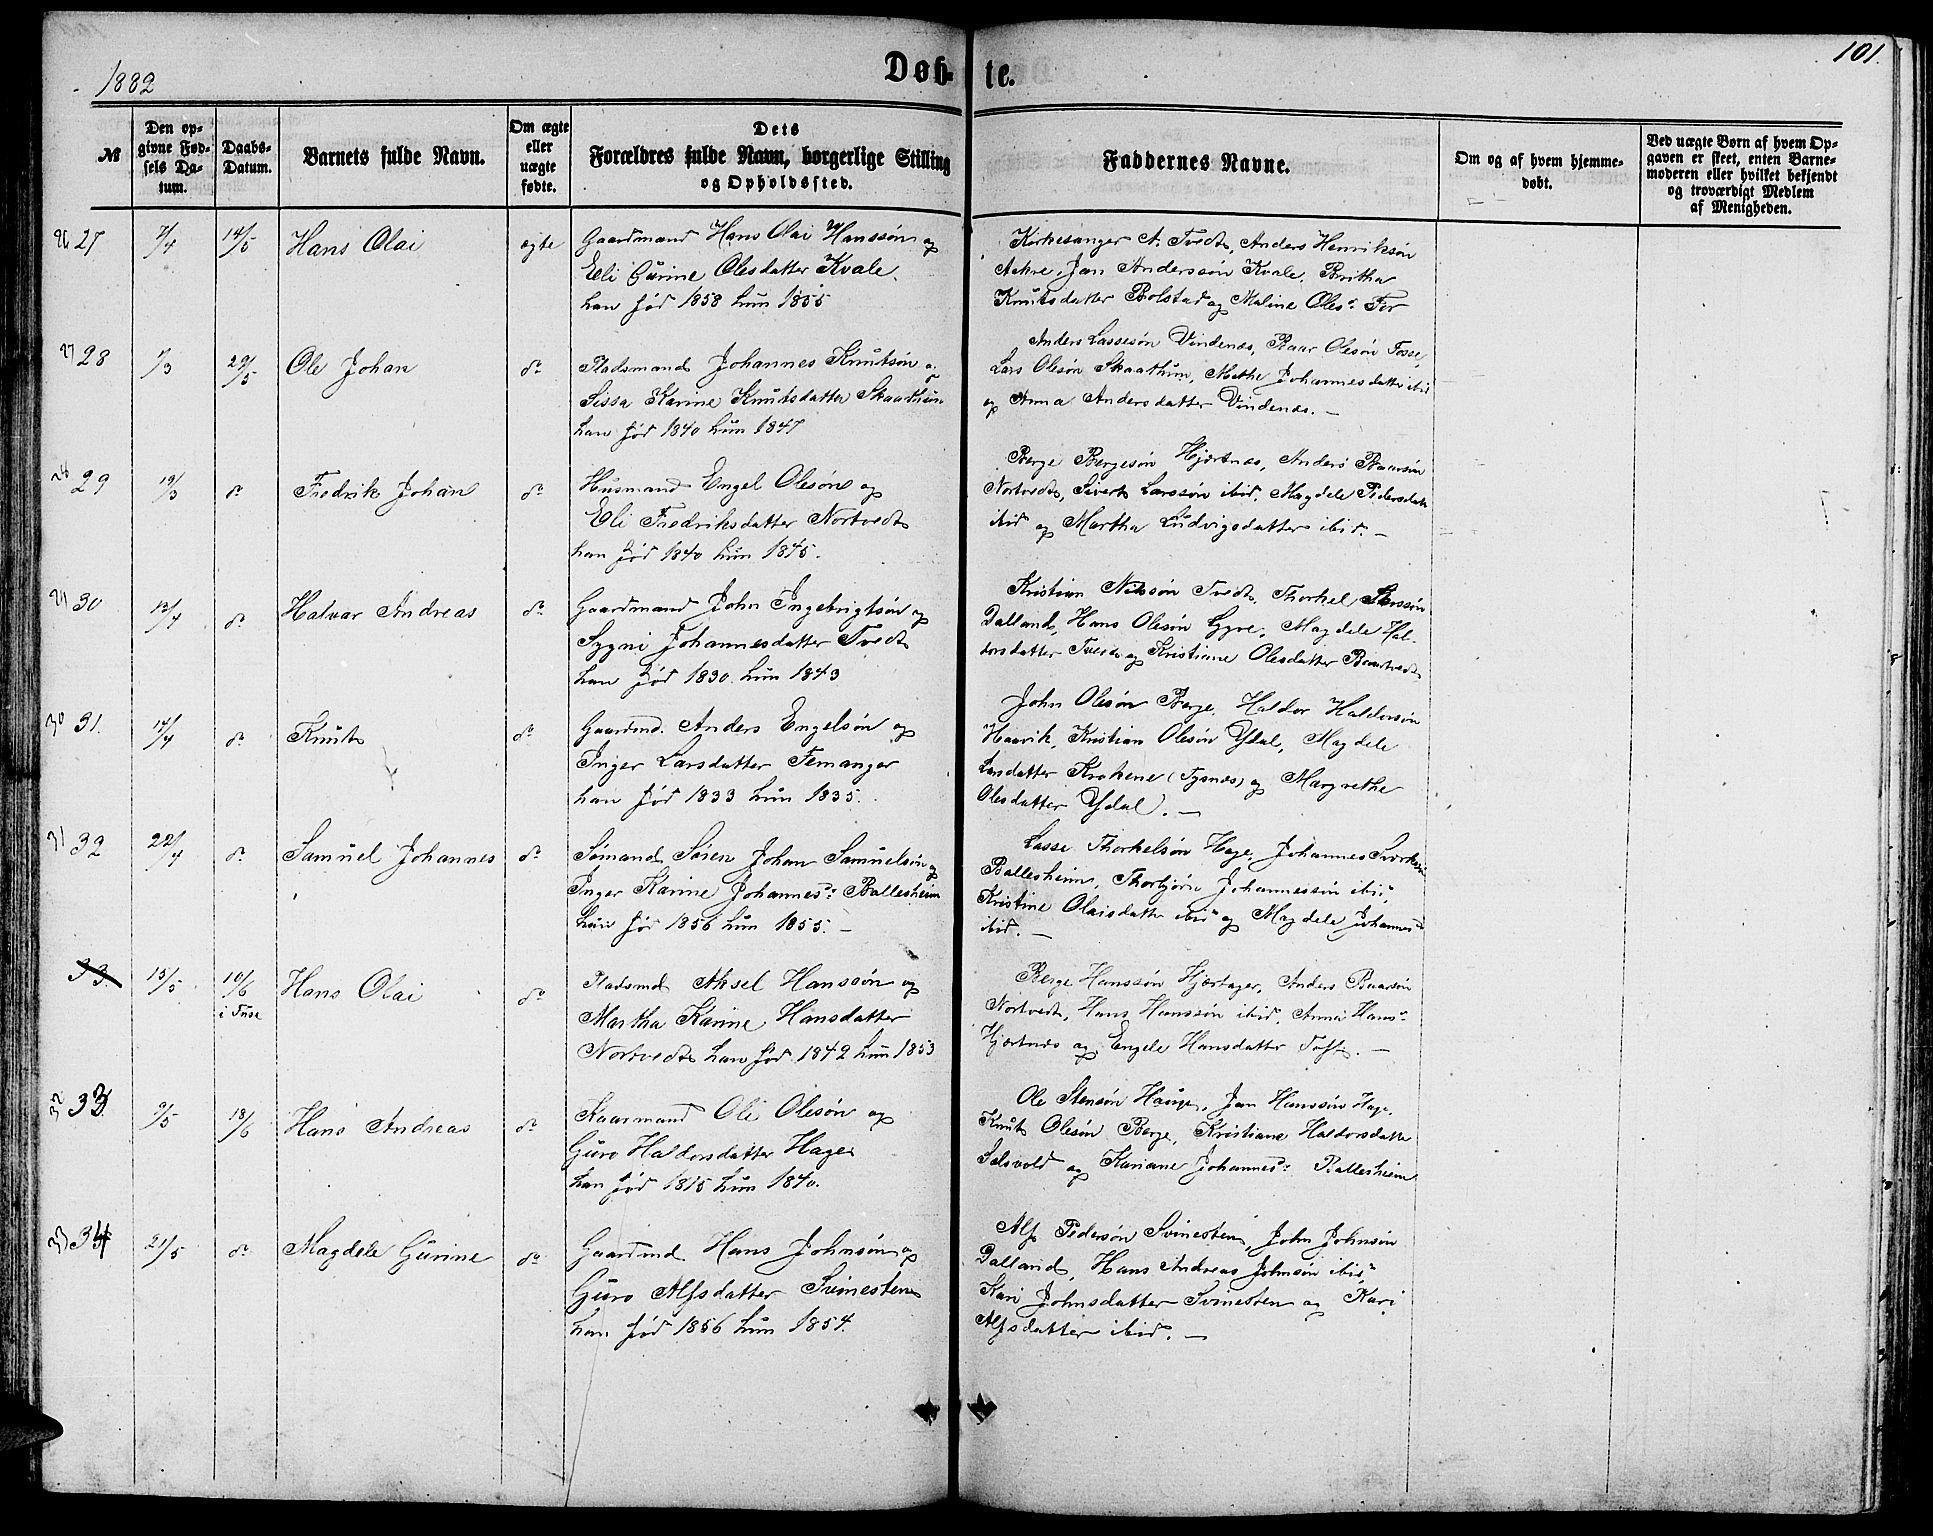 1882
Døb-
te.
101.
№
Den op-
givne Fød-
sels Da-
tum.
Daabs-
Datum.
Barnets fulde Navn.
Om ægte
eller
uægte
fødte.
Dets
Forældres fulde Navn, borgerlige Stilling
og Opholdssted.
Faddernes Navne.
Om og af hvem hjemme-
døbt.
Ved uægte Børn af hvem Op-
gaven er skeet, enten Barne-
moderen eller hvilket bekjendt
og troværdigt Medlem
af Menigheden.
26 27
7/4
14/5
Hans Olai
ægte
Gaardmand Hans Olai Hanssøn og
Eli Gurine Olesdatter Kvale
han fød 1858 hun 1855
Kirkesanger A. Tvedt, Anders Henriksøn
Aakre, Jan Anderssøn Kvale, Britha
Knutsdatter Bolstad og Maline Oles:
27 28
7/3
29/5
Ole Johan
do
Pladsmand Johannes Knutsøn og
Sissa Karine Knutsdatter Skaathun
han fød 1840 hun 1847
Anders Lassesøn Vindenæs, Baar Olesøn Fosse,
Lars Olesøn Skaathun, Mathe Johannesdatter ibid
og Anna Andersdatter Vindenæs. —
28 29
19/3
do
Fredrik Johan
do
Husmand Engel Olesøn og
Eli Fredriksdatter Nortvedt
han fød 1840 hun 1845.
Berge Bergesøn Hjertnæs, Anders Baarsøn
Nortvedt, Sivert Larssøn ibid, Magdele Pedersdatter
ibid og Martha Ludvigsdatter ibid. —
29 30
13/4
do
Halvar Andreas
do
Gaardmand John Ingebrigtsøn og
Sygni Johannesdatter Tvedt
han fød 1830 hun 1843
Kristian Nilssøn Tvedt, Thorkel
Dalland, Hans Olesøn Gjøe, Magdele Hal-
dorsdatter Tvedt og Kristiane Olesdatter
30 31.
17/4
do
Knut
do
Gaardmd. Anders Engelsøn og
Inger Larsdatter Femanger
han fød 1833 hun 1835.
John Olesøn Berge, Haldor Haldorsøn
Haavik, Kristian Olesøn Ydal, Magdele
Larsdatter Krokene (Tysnæs) og Margrethe
Olesdatter Ydal. —
31 32
22/4
do
Samuel Johannes
do
Sømand Søren Johan Samuelsøn og
Inger Karine Johannes: Ballesheim
han fød 1856 hun 1855. —
Lasse Thorkelsøn Hage, Johannes
Ballesheim, Thorbjørn Johannessøn ibid,
Kristine Olaisdatter ibid og Magdele Johannes:
ibid. —
33.
15/5
10/6
i Fuse
Hans Olai
do
Pladsmd Aksel Hanssøn og
Martha Karine Hansdatter
Nortvedt han fød 1842 hun 1853
Berge Hanssøn Hjertager, Anders Baarsøn
Nortvedt, Hans Hanssøn ibid, Anna Hans:
Hjertnæs og Engele Hansdatter Tofte. —
32 33.
9/5
18/6
Hans Andreas
do
Kaarmand Ole Olesøn og
Guro Haldorsdatter Hage
han fød 1815 hun 1840.
Ole Stensøn Hauge, Jan Hanssøn Hage,
Knut Olesøn Berge, Kristiane Haldorsdatter
Selsvold og Kariane Johannes: Ballesheim
33 34
21/5
do
Magdele Gurine
do
Gaardmd Hans Johnsøn og
Guro Alfsdatter Svinesten
han fød 1856 hun 1854.
Alf Pedersøn Svinesten, John Johnsøn
Dalland, Hans Andreas Johnsøn ibid,
Kari Johnsdatter Svinesten og Kari
Alfsdatter ibid. —